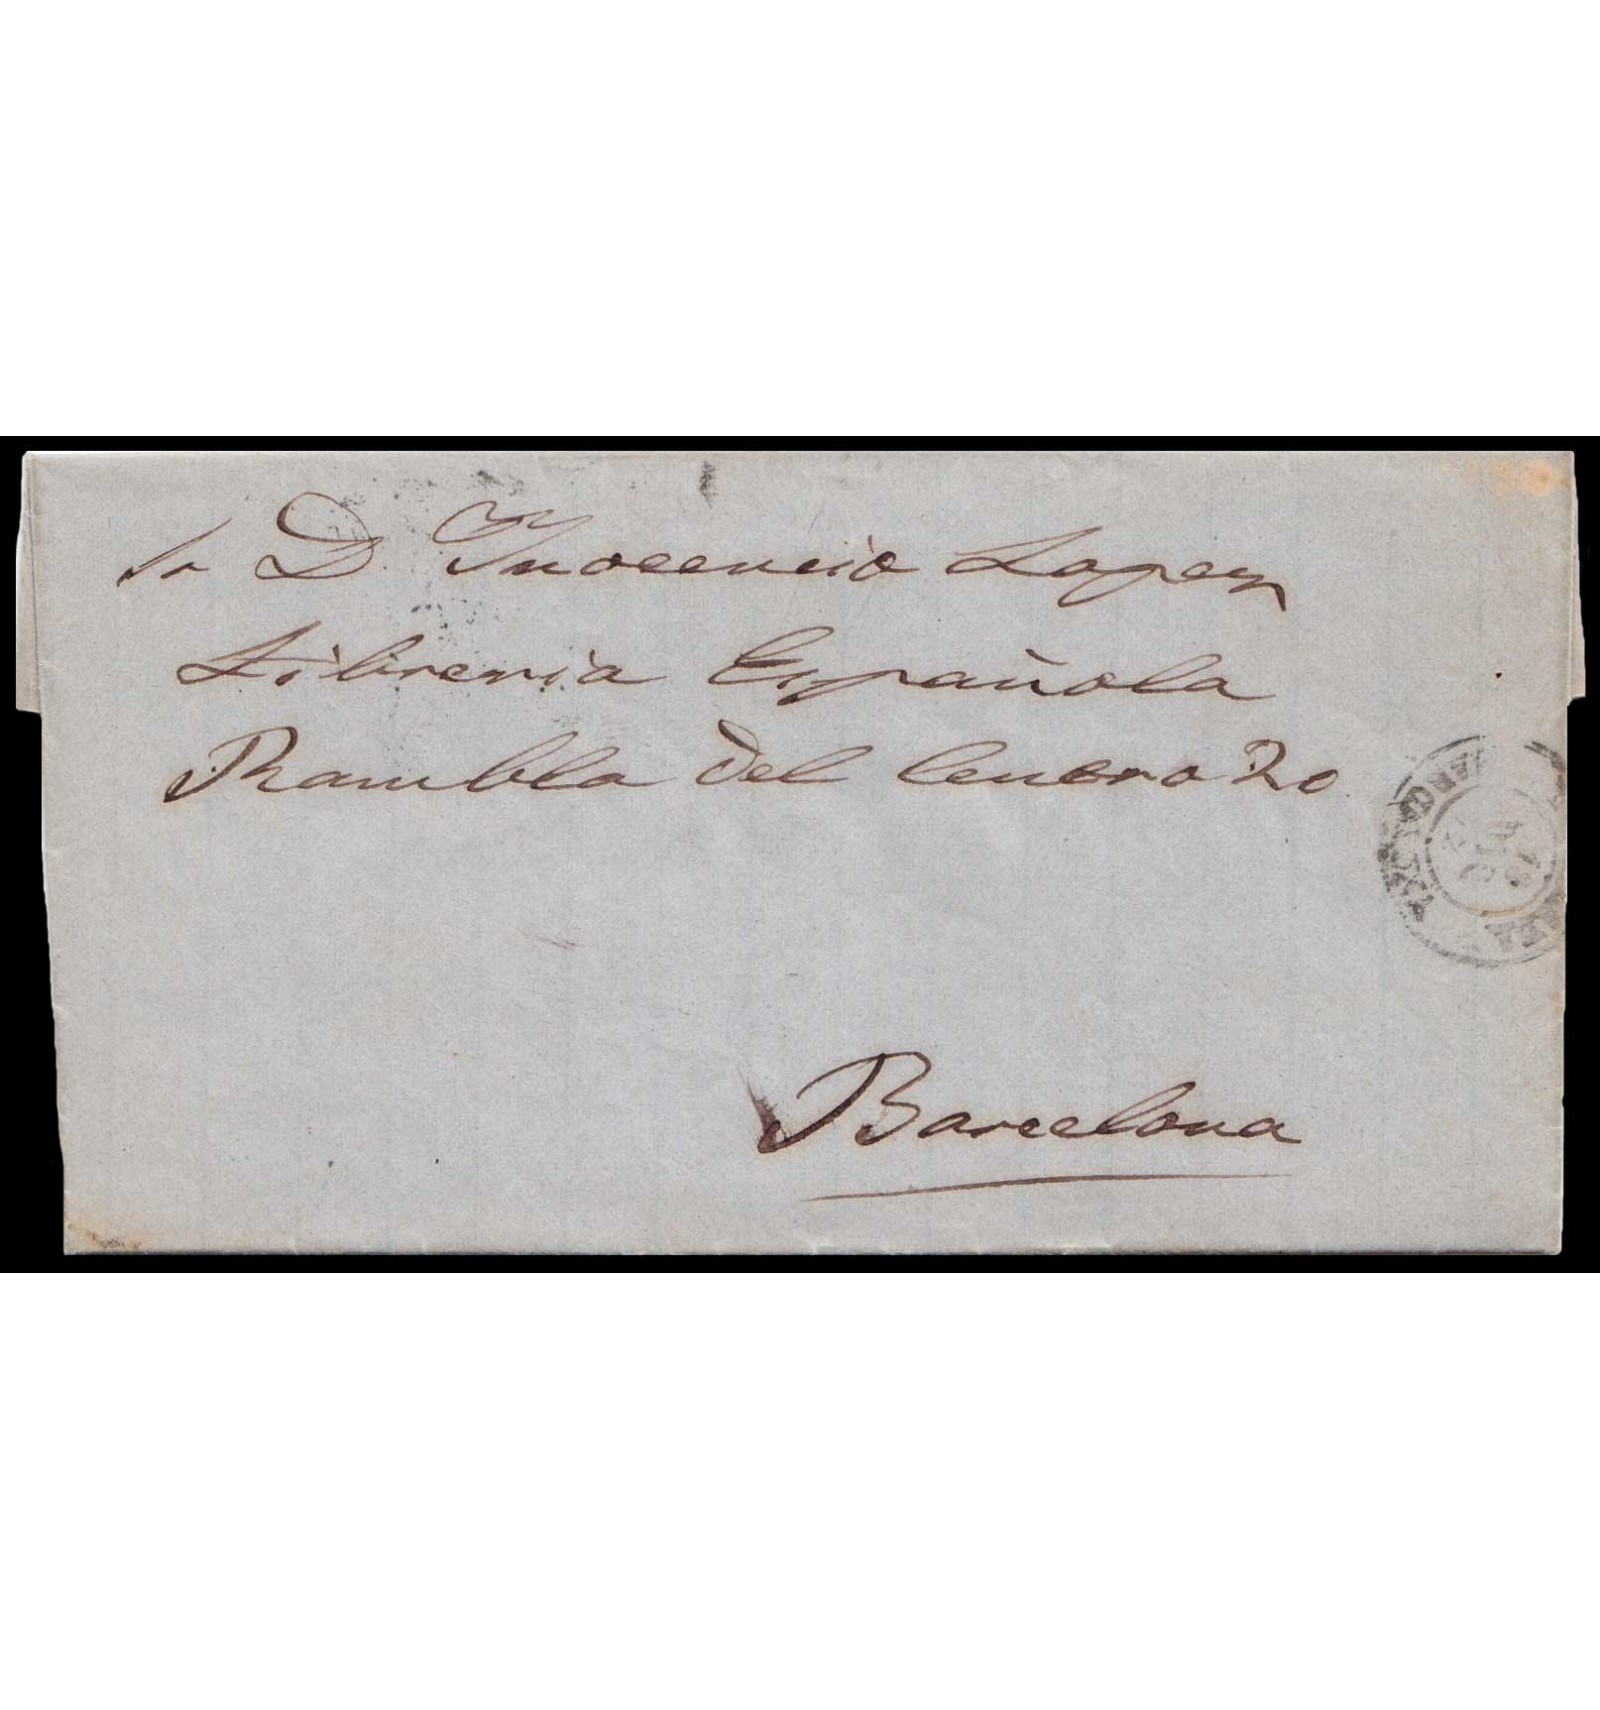 Sr D. Ynocencio Lopez
Libreria Española
Rambla del Centro 20
Barcelona